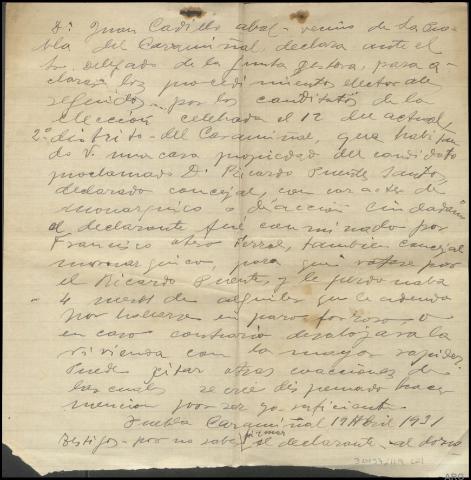 Dn Juan Cadillo Abal - vecino de la Pue-
bla del Caramiñal, declara ante el
Sr. Delegado de la Junta gestora, para a-
clarar los procedimientos electorales
seguidos por los candidatos de la
elección celebrada el 12 del actual,
2º distrito - del Caramiñal, que habitan-
do V. una casa propiedad del candidato
proclamado D. Ricardo Puente Santo,
declarado concejal, con caracter de
monarquico o d'acción Ciudadana
el declarante fué conminado por
Francisco Otero Ferral, tambien concejal
monarquico, para que votase por
el Ricardo Puente, y le perdonaba
4 meses de alquiler que le adeuda
por hallarse en paro forzoso, o
en caso contrario desalojara la
vivienda con la mayor rapidez.
Puede citar otras coacciones de
las cuales se cree dispensado hacer
mencion por ser ya suficiente
Puebla Caramiñal 19 Abril 1931
Testigos - por no saber firmar el declarante -
ARG